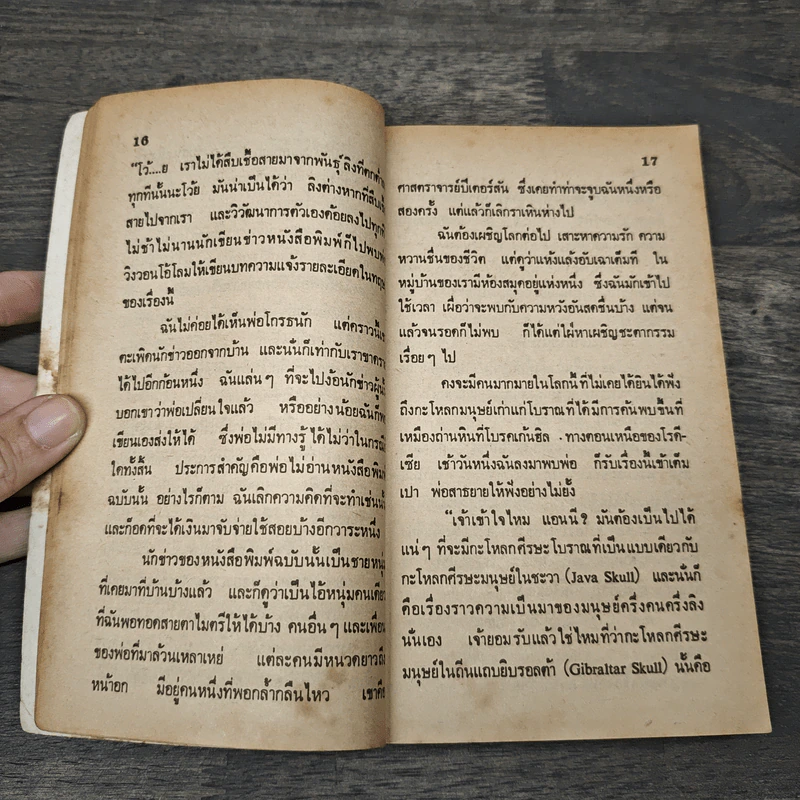 16
“โว้....ย เราไม่ได้สืบเชื้อสายมาจากพันธุ์ลิงที่ตกต่ำ
ทุกทีนั้นนะโว้ย มันน่าเป็นได้ว่า ลิงต่างหากที่สืบเชื้อ
สายไปจากเรา และวิวัฒนาการตัวเองด้อยลงไปทุกที
ไม่ช้าไม่นานนักเขียนข่าวหนังสือพิมพ์ก็ไปพบพ่อ
วิงวอนโอ้โลมให้เขียนบทความแจ้งรายละเอียดในทฤษ
ของเรื่องนี้
ฉันไม่ค่อยได้เห็นพ่อโกรธนัก แต่คราวนี้
ตะเพิดนักข่าวออกจากบ้าน และนั่นก็เท่ากับเราขาด
ได้ไปอีกก้อนหนึ่ง ฉันแล่นๆ ที่จะไปง้อนักข่าวผู้นั้
บอกเขาว่าพ่อเปลี่ยนใจแล้ว หรืออย่างน้อยฉันก็
เขียนเองส่งให้ได้ ซึ่งพ่อไม่มีทางรู้ได้ไม่ว่าในกรณี
ใดทั้งสิ้น ประการสำคัญคือพ่อไม่อ่านหนังสือพิม
ฉบับนั้น อย่างไรก็ตาม ฉันเลิกความคิดที่จะทำเช่นนั้
และก็อดที่จะได้เงินมาจับจ่ายใช้สอยบ้างอีกวาระหนึ่ง
นักข่าวของหนังสือพิมพ์ฉบับนั้นเป็นชายหนุ่ม
ที่เคยมาที่บ้านบ้างแล้ว และก็ดูว่าเป็นไอ้หนุ่มคนเดีย
ที่ฉันพอทอดสายตาไมตรีให้ได้บ้าง คนอื่นๆ และเพื่อน
ของพ่อที่มาล้วนเหลาเหย่ แต่ละคนมีหนวดยาวถึง
หน้าอก มีอยู่คนหนึ่งที่พอกล้ำกลืนไหว เขาคือ
17
ศาสตราจารย์ปีเตอร์สัน ซึ่งเคยทำท่าจะจูบฉันหนึ่งหรือ
สองครั้ง แต่แล้วก็เลิกราเหินห่างไป
ฉันต้องเผชิญโลกต่อไป เสาะหาความรัก ความ
หวานชื่นของชีวิต แต่ดูว่าแห้งแล้งอับเฉาเต็มที ใน
หมู่บ้านของเรามีห้องสมุดอยู่แห่งหนึ่ง ซึ่งฉันมักเข้าไป
ใช้เวลา เผื่อว่าจะพบกับความหวังอันสดชื่นบ้าง แต่จน
แล้วจนรอดก็ไม่พบ ก็ได้แต่ใฝ่หาเผชิญชะตากรรม
เรื่อยๆ ไป
คงจะมีคนมากมายในโลกนี้ที่ไม่เคยได้ยินได้ฟัง
ถึงกะโหลกมนุษย์เก่าแก่โบราณที่ได้มีการค้นพบขึ้นที่
เหมืองถ่านหินที่โบรคเก้นฮิล ทางตอนเหนือของโรดี-
เซีย เช้าวันหนึ่งฉันลงมาพบพ่อ ก็รับเรื่องนี้เข้าเต็ม
เปา พ่อสาธยายให้ฟังอย่างไม่ยั้ง
“เจ้าเข้าใจไหม แอนนี? มันต้องเป็นไปได้
แน่ๆ ที่จะมีกะโหลกศีรษะโบราณที่เป็นแบบเดียวกับ
กะโหลกศีรษะมนุษย์ในชะวา (Java Skull) และนั่นก็
คือเรื่องราวความเป็นมาของมนุษย์ครึ่งคนครึ่งลิง
นั่นเอง เจ้ายอมรับแล้วใช่ไหมที่ว่ากะโหลกศีรษะ
มนุษย์ในถิ่นแถบยิบรอลต้า (Gibraltar Skull) นั้นคือ